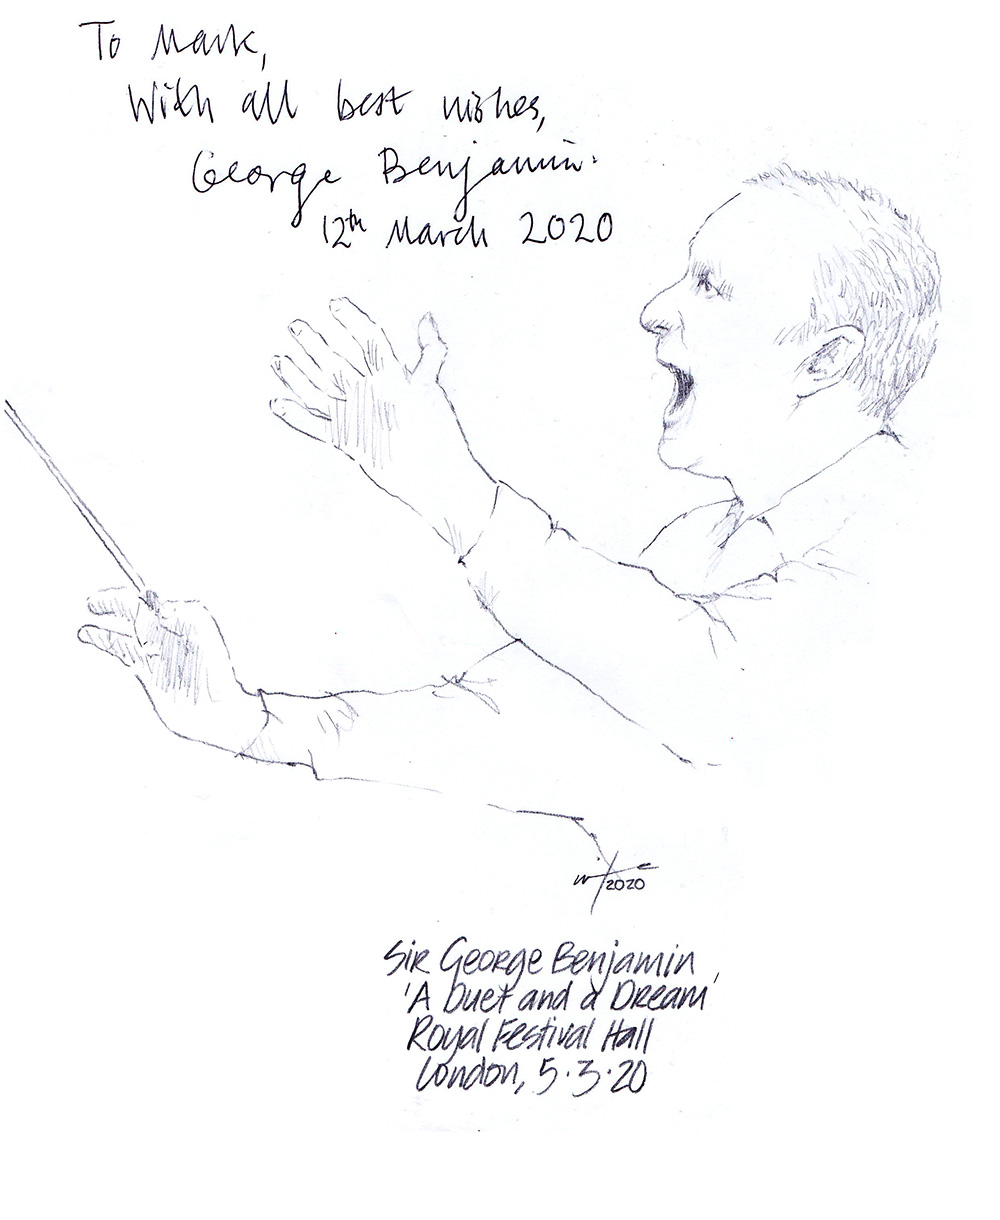 To Mark,
With all best wishes,
George Benjamin.
12th March 2020
2020
Sir George Benjamin,
'A Duet and a Dream'
Royal Festival Hall
London, 5.3.20